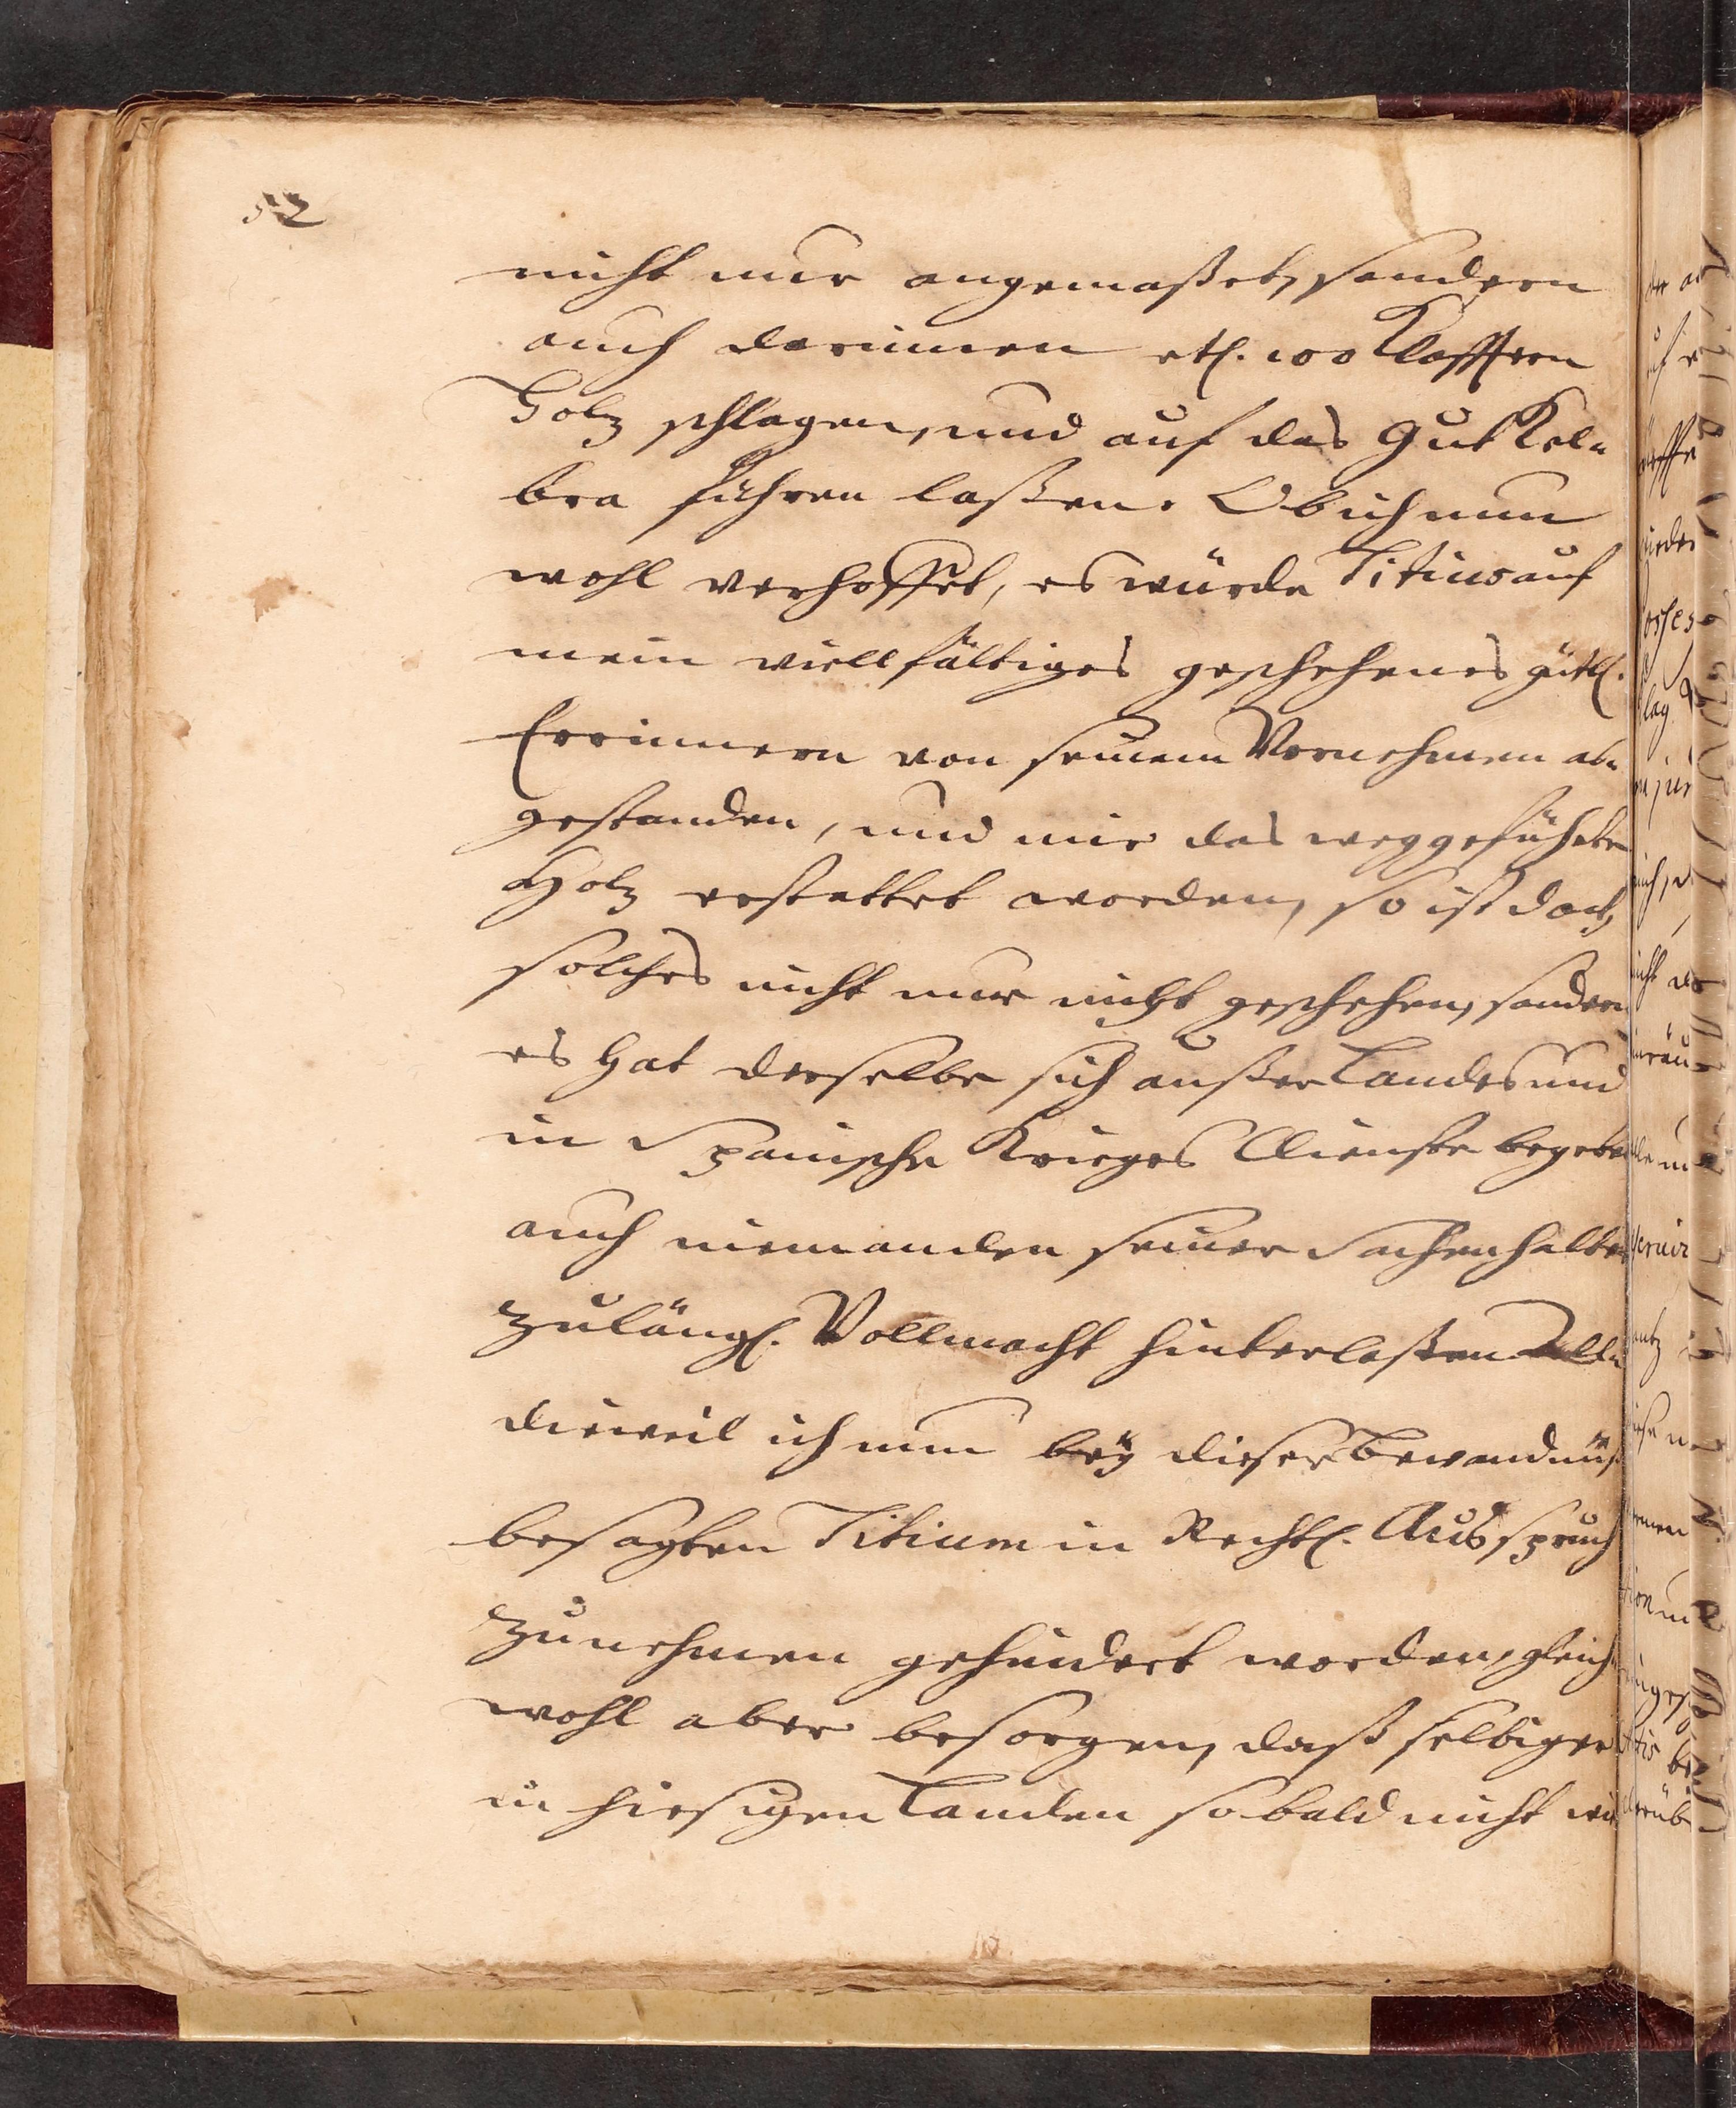 52
nicht nur angemaßet, sondern
auch darinnen etl. 100 Klafftern
Holz schlagen, und auf das Gut Kel-
bra führen laßen. Ob ich nun
wohl verhoffet, es würde Titius auf
mein vielfältiges geschehenes gütl.
Erinnern von seinem Vornehmen ab-
gestanden, und mir das weggeführte
Holz erstattet worden, so ist doch
solches nicht nur nicht geschehen, sondern
es hat derselbe sich außer Landes und
in Spanische Krieges Dienste begeben
auch niemanden seiner Sachen halber
zulängl. Vollmacht hinterlaßen
dieweil ich nun bey dieser Bewandnüß
besagten Titium in Rechtl. Ausspruch
zu nehmen gehindert worden, gleich-
wohl aber besorgen, daß selbiger
in hiesigen Landen so bald nicht wie